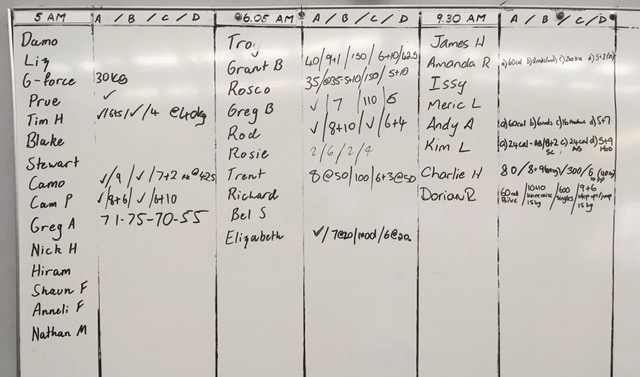 5 AM A / B / C / D
Damo
Liz
G-force 30KG
Prue ✓
Tim H ✓/ /✓/4 @40kg
Blake
Stewart
Camo ✓/9/✓/7+2 @42.5
Cam P ✓/8+6/✓/6+10
Greg A 71-75-70-55
Nick H
Hiram
Shaun F
Anneli F
Nathan M
6.05 AM A / B / C / D
Troy
Grant B 40/9+1/150/6+10/42.5
Rosco 35/@35 5+10/150/5+10
Greg B ✓/7/110/5
Rod ✓/8+10/✓/6+4
Rosie 2/6/2/4
Trent 8@50/100/6+3@50
Richard
Bel S
Elizabeth ✓/7@20/mod/6@20
9.30 AM A / B / C / D
James H
Amanda R a)60cal b) c) d)5+2
Issy
Meric L
Andy A a)60cal b)6rnds c) d)5+7
Kim L a)24cal-AB/8+2 c)24cal d)5+9
Charlie H 80/8+9/300/6
Dorian R 60cal /10+10 15kg/600 singles/9+6 15kg